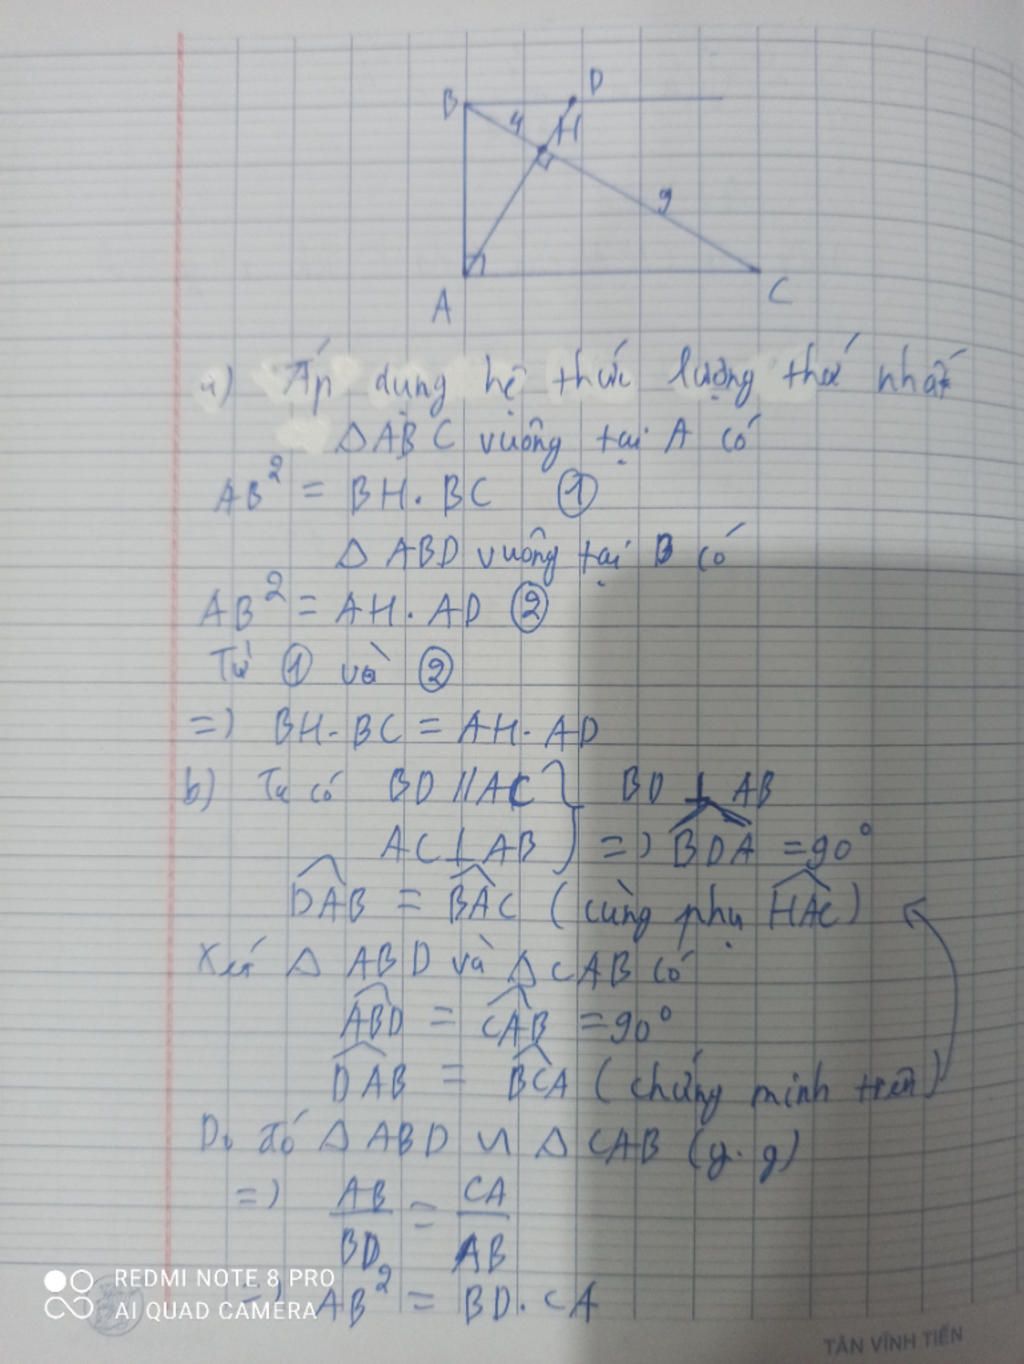 B D
4 H
9
A C
a) Áp dụng hệ thức lượng thứ nhất
Δ ABC vuông tại A có
AB² = BH. BC ①
Δ ABD vuông tại B có
AB² = AH. AD ②
Từ ① và ②
=) BH. BC = AH. AD
b) Ta có BD // AC } BD ⊥ AB
AC ⊥ AB } =) BDA = 90°
DAB = BAC (cùng phụ HAC)
Xét Δ ABD và Δ CAB có
ABD = CAB = 90°
DAB = BCA (chứng minh trên)
Do đó Δ ABD ∽ Δ CAB (g.g)
=) AB/BD = CA/AB
=) AB² = BD. CA
REDMI NOTE 8 PRO
AI QUAD CAMERA
TÂN VĨNH TIẾN